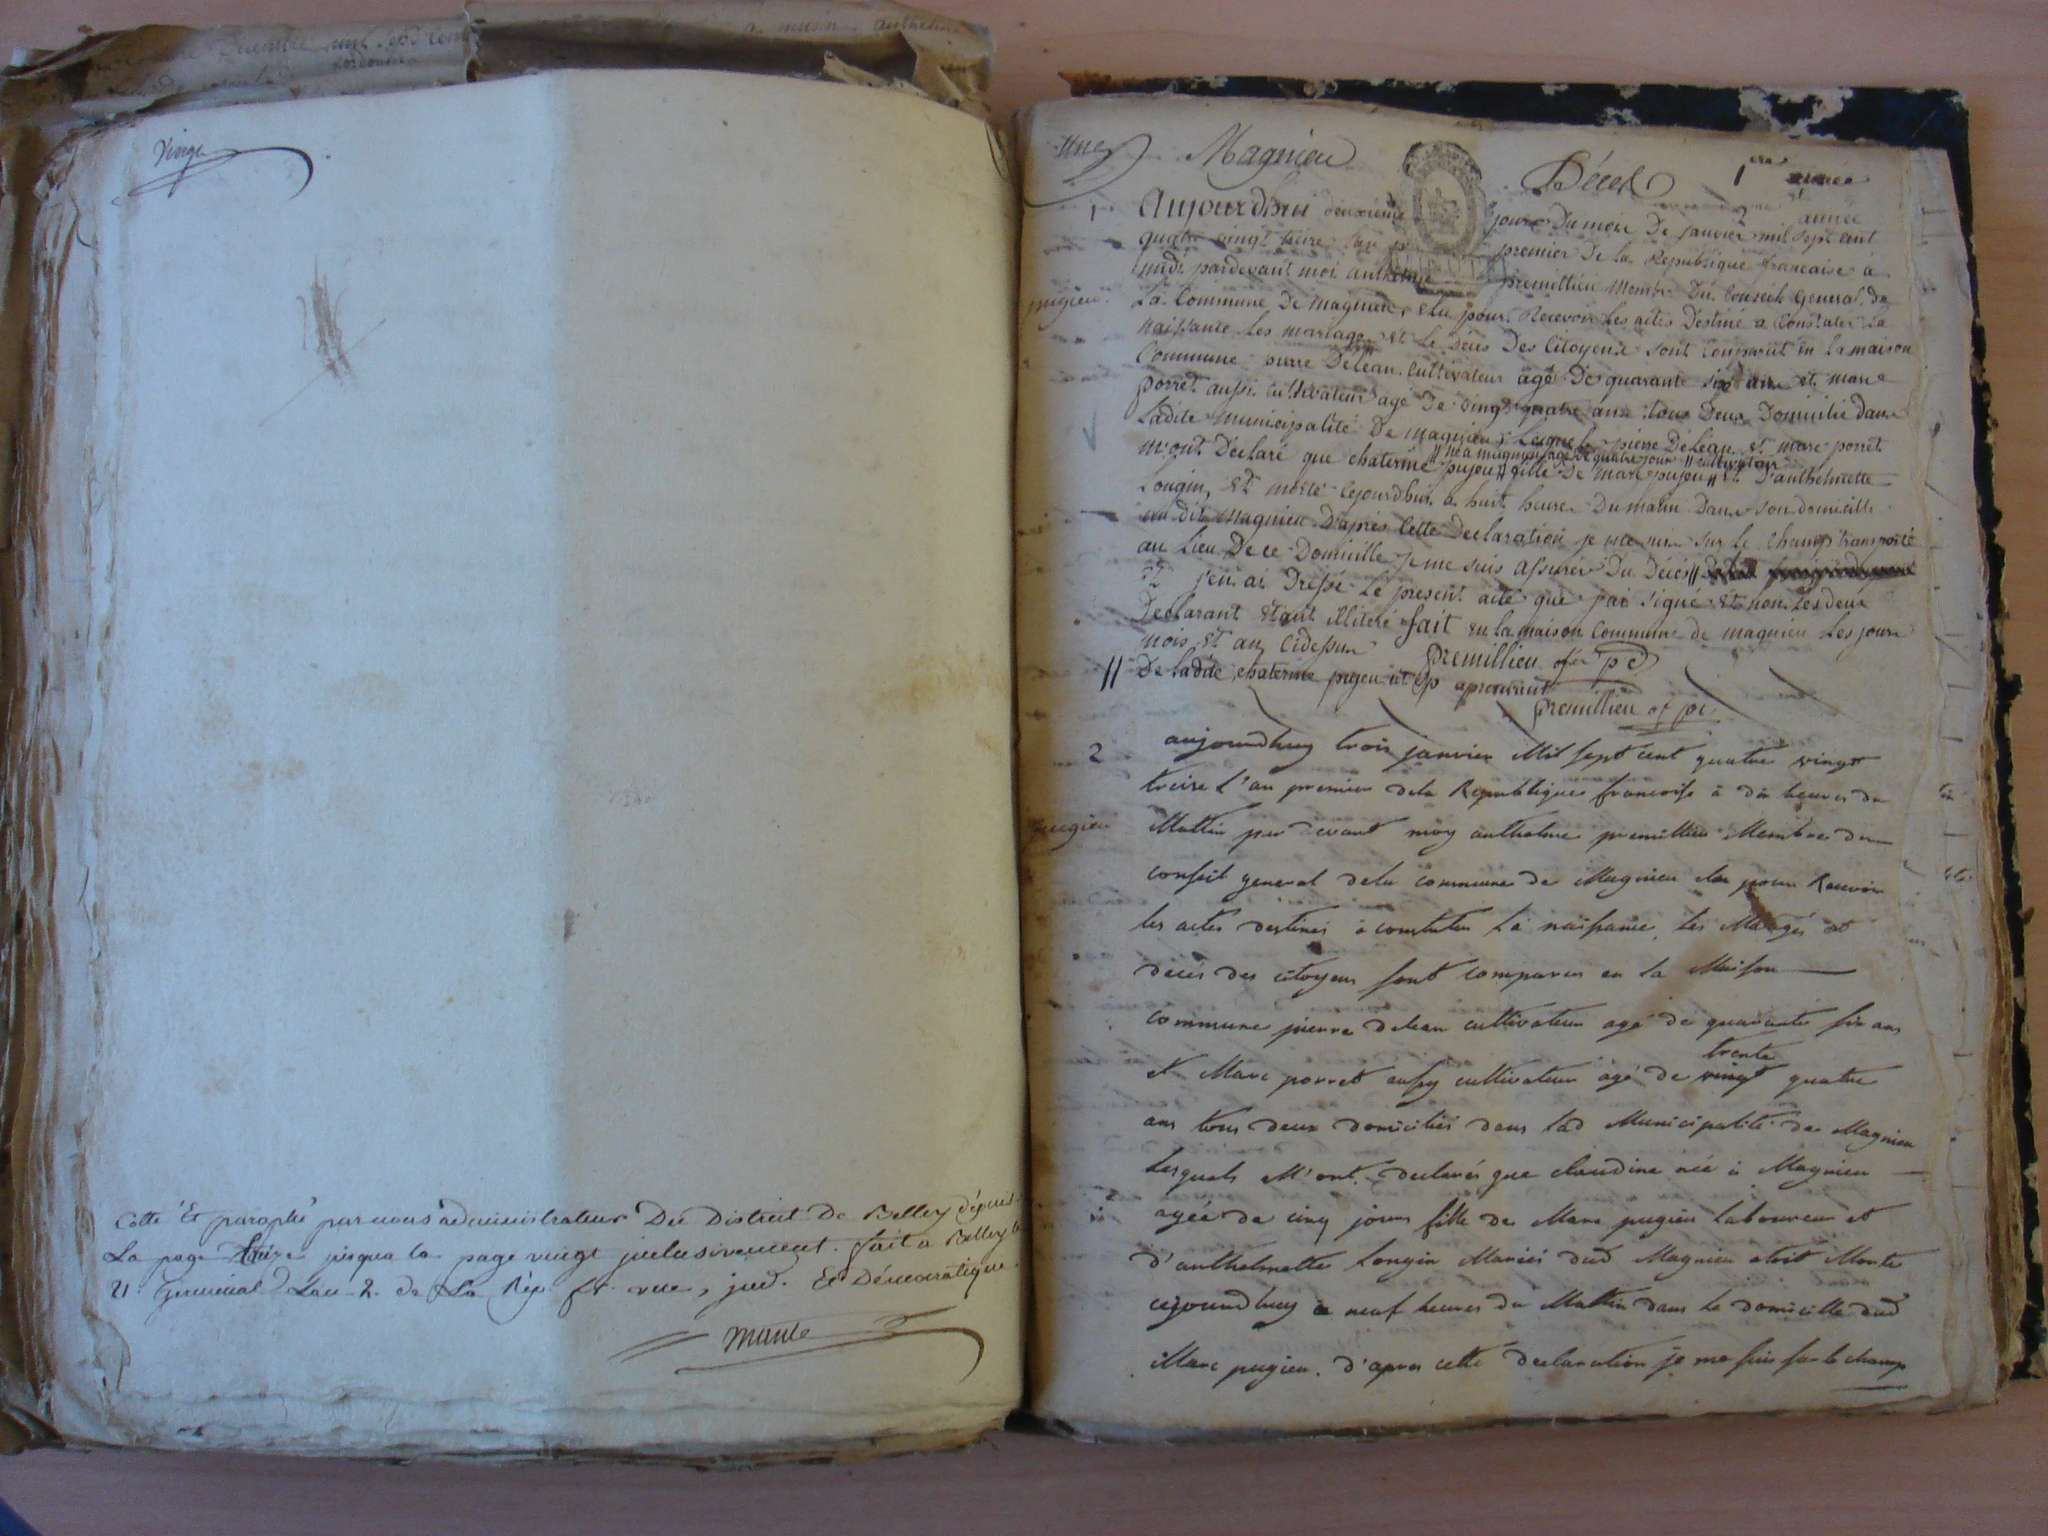 Vingt
Cotté Et paraphé par nous administrateur Du District De Belley depuis
La page jusqua la page vingt inclusivement. fait a Belley le
21 Germinal Lan 2 de La Rép. fr. une, ind. Et Démocratique.
Une
Magnieu
Décès
1ere
année
année
1
Aujourdhui deuxième jour Du mois De janvier mil sept cent
quatre vingt treize lan premier De la Republique francaise à
midi pardevant moi anthelme premillieu membre Du Conseil General de
pugieu
La Commune De magnieu, elu pour Recevoir les actes Destiné a Constater la
naissance les mariage et le décès Des Citoyens sont comparut en la maison
Commune pierre Delean Cultivateur agé De quarante six ans et marc
porret aussi cultivateur agé De vingt quatre ans tous Deux Domicilié dans
Ladite municipalité De magnieu, Lesquels pierre Deléan et marc porret
// né a magnieu agé De quatre jour // cultivateur
m'ont Declaré que chaterine pujeu // fille De marc pujeu // et D'anthelmette
Longin, Et morte cejourdhui a huit heures Du matin Dans son domicille
au dit magnieu D'après Cette Declaration je me suis sur le champ transporté
au Lieu De ce Domicille je me suis assurér Du Décès //
Et j'en ai Dressé Le present acte que jai signé Et non Les deux
Declarant Etant illiteré fait en la maison Commune de magnieu Les jour
mois Et an Cidessus
premillieu ofer pc
// De ladite chaterine pujeu et aprouvant
premillieu of pc
2
aujourdhuy trois janvier Mil sept cent quatre vingt
treize l'an premier dela Republique francoise à dix heures du
pugieu
Mattin par devant moy anthelme premillieu Membre du
conseil general dela commune de Magnieu elu pour Recevoir
les actes destinés à constater la naissance, les Mariages et
décès des citoyens sont comparus en la Maison
commune pierre delean cultivateur agé de quarante six ans
trente
et Marc porret aussy cultivateur agé de vingt quatre
ans tous deux domiciliés dans lad Municipalité de Magnieu
Lesquels M'ont declarés que claudine née à Magnieu
agée de cinq jours fille de Marc pugieu laboureur et
d'anthelmette Longin Mariés dud Magnieu etoit Morte
cejourdhuy a neuf heures du Mattin dans le domicille dud
Marc pugieu. d'apres cette declaration je me suis sur le champ